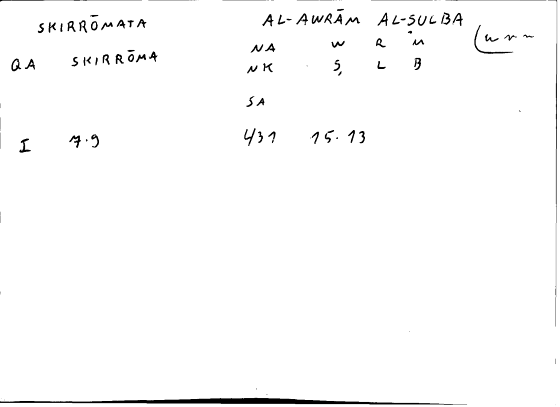 SKIRRŌMATA AL-AWRĀM AL-SULBA
NA W R M
QA SKIRRŌMA NK Ṣ L B
SA
I 7.9 4/31 15.13